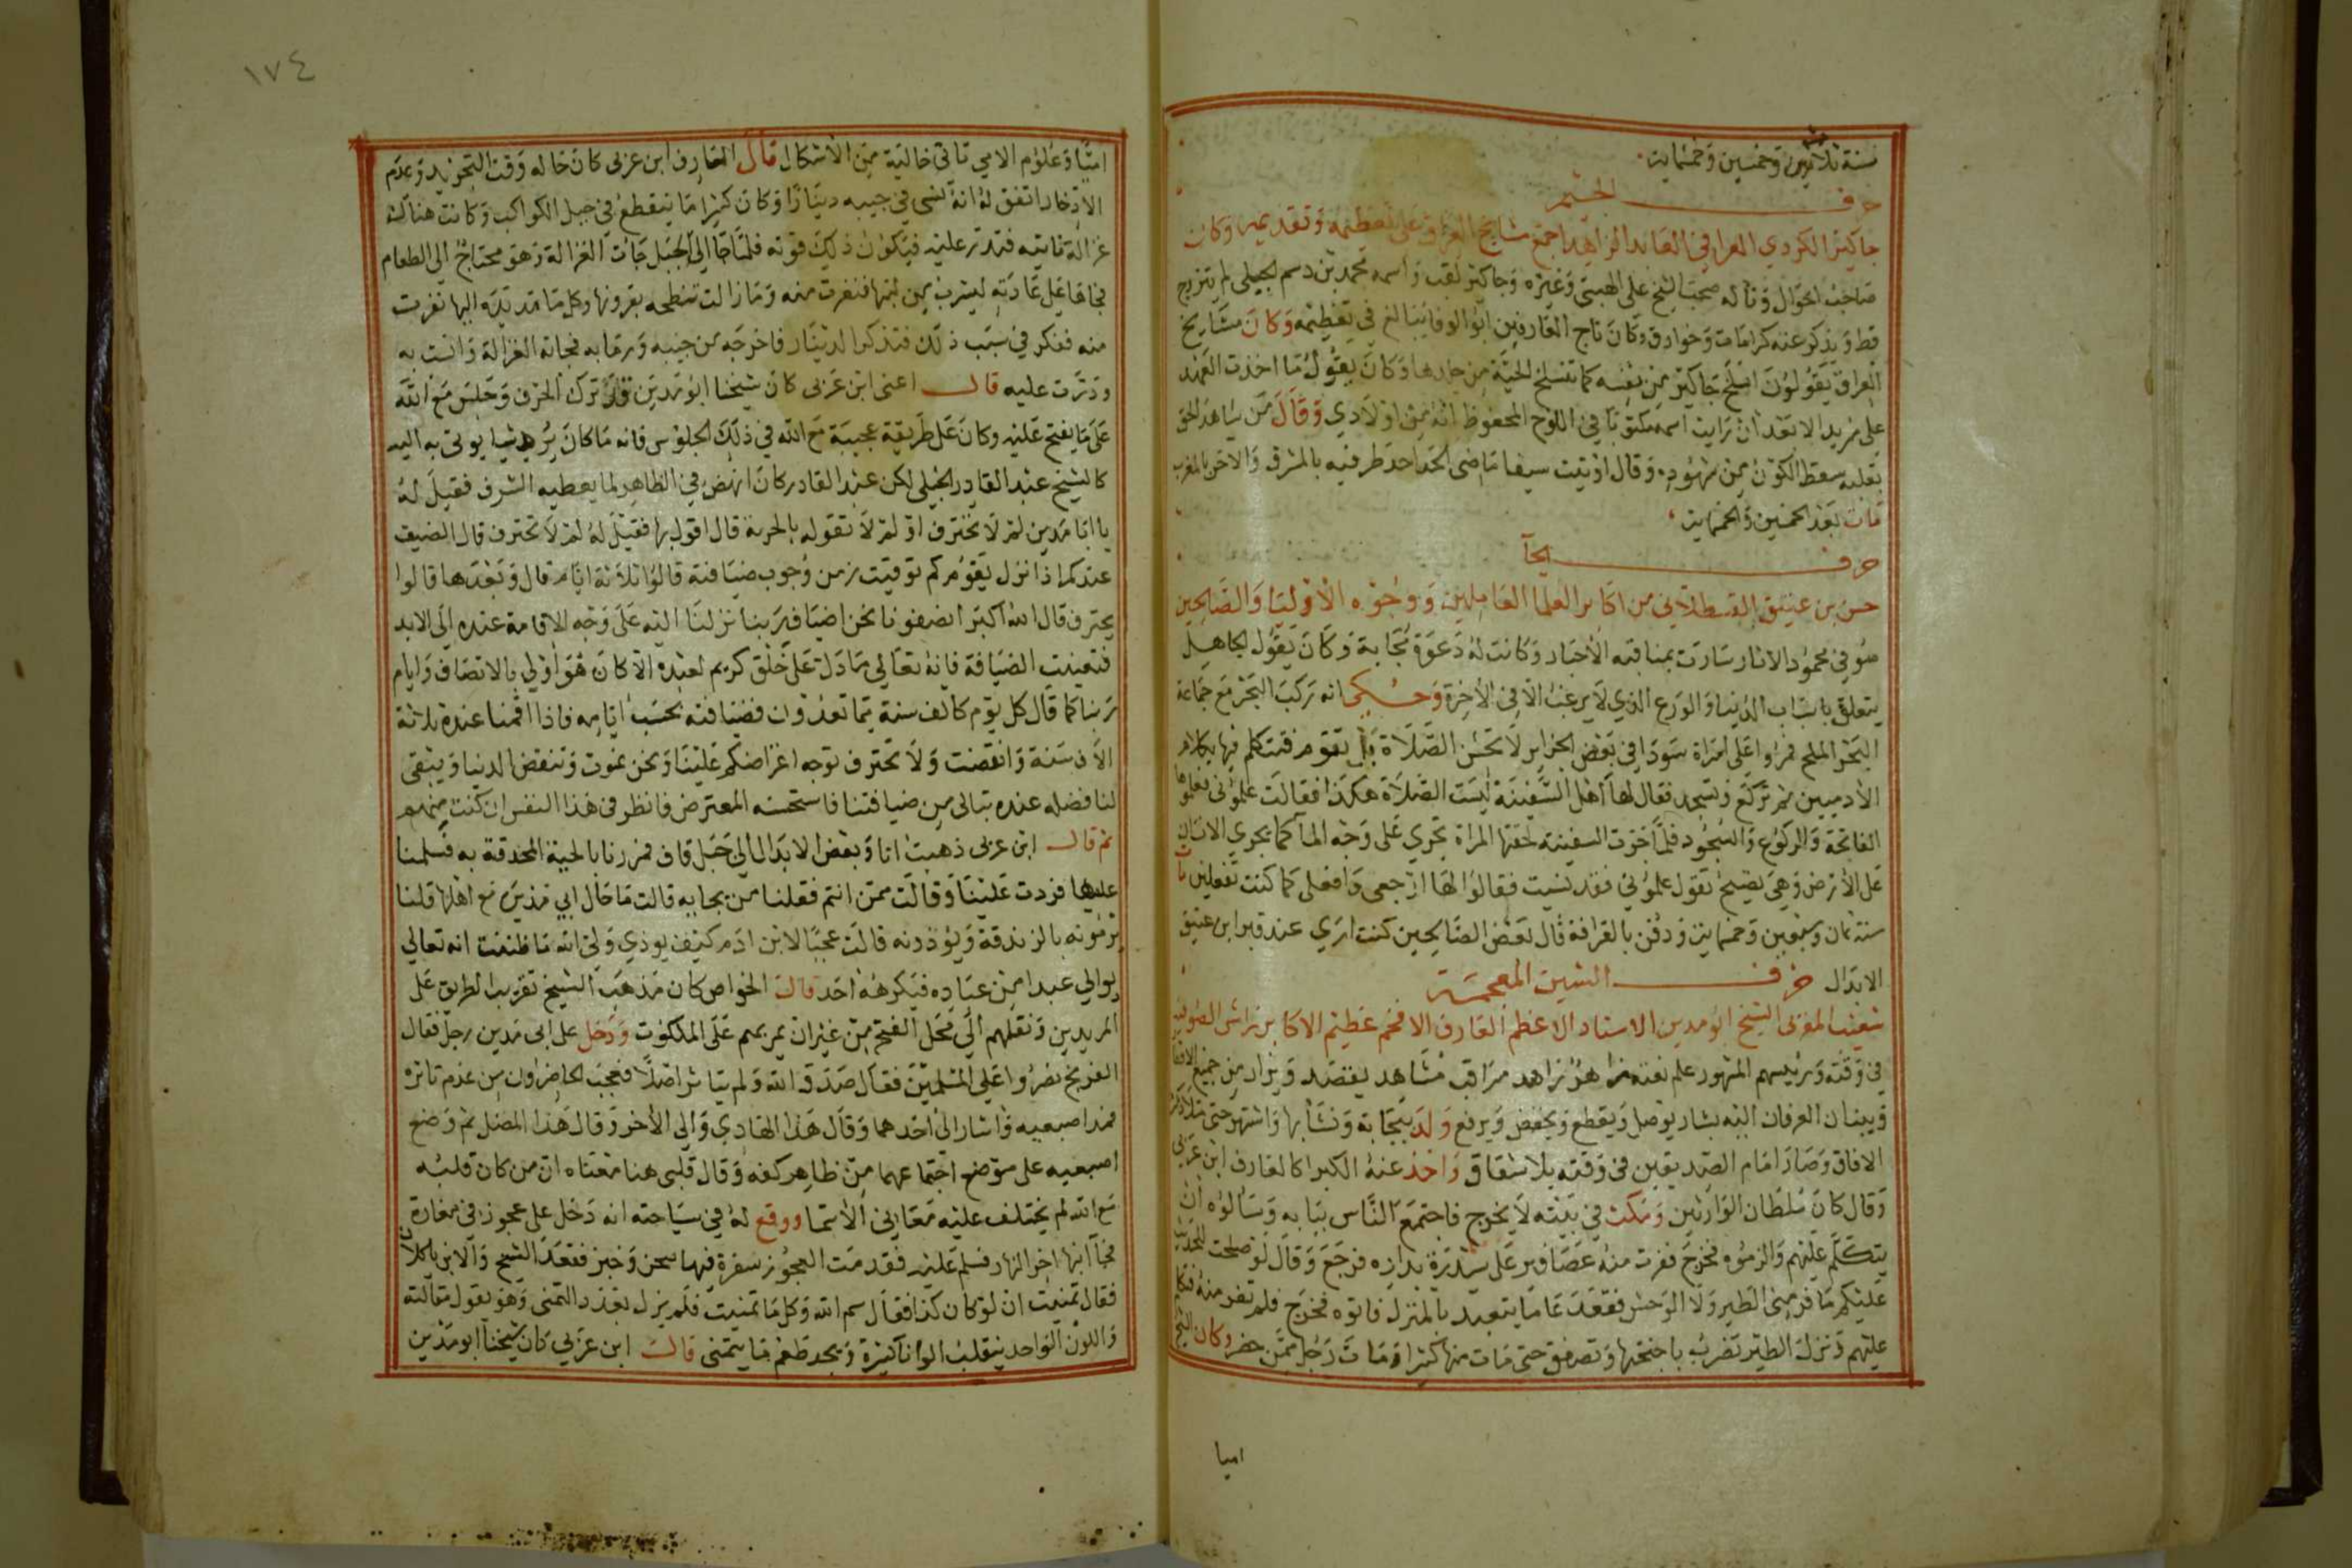 سنة ثلاثين وخمسين وخمسماية
حرف الجيم
جاكير الكردي العراقي العابد الزاهد اجمع مشايخ العراق على تعظيمه وتقديمه وكان
صاحب احوال وتأله صحب الشيخ علي الهيتي وغيره وجاكير لقب واسمه محمد بن دسم الحبلي لم يتزوج
قط ويذكر عنه كرامات وخوارق وكان تاج العارفين ابو الوفا يبالغ في تعظيمه وكان مشايخ
العراق يقولون انسلخ جاكير من نفسه كما تنسلخ الحية من جلدها وكان يقول ما اخذت العهد
على مريد الا بعد ان رايت اسمه مكتوبا في اللوح المحفوظ انه من اولادي وقال من شاهد الحق
بقلبه سقط الكون من شهوده وقال اوتيت سيفا ماضي الحد احد طرفيه بالمشرق والاخر بالمغرب
مات بعد الخمسين والخمسماية
حرف الحآ
حسن بن عتيق القسطلاني من اكابر العلما العاملين ووجوه الاوليا والصالحين
صوفي محمود الاثار سارت بمناقبه الأخبار وكانت له دعوة مجابة وكان يقول الجاهل
يتعلق باسباب الدنيا والورع الذي لا يرغب الا في الاخرة وحكي انه ركب البحر مع جماعة
البحر الملح فمروا على امراة سودا في بعض الجزاير لا تحسن الصلاة بل تقوم فتتكلم فيها بكلام
الأدميين ثم تركع وتسجد فقال لها اهل السفينة ليست الصلاة هكذا فقالت علموني فعلموها
الفاتحة والركوع والسجود فلما جرت السفينة لحقتها المراة تجري على وجه المآ كما يجري الانسان
على الأرض وهي تصيح تقول علموني فقد نسيت فقالوا لها ارجعي وافعلي كما كنت تفعلين مات
سنة ثمان وسبعين وخمسماية ودفن بالقرافة قال بعض الصالحين كنت اري عند قبر ابن عتيق
الابدال حرف الشين المعجمة
شعيب المغربي الشيخ ابو مدين الاستاد الاعظم العارف الافخم عظيم الاكابر راس الصوفية
في وقته ورئيسهم المشهور علم نعته زاهد مراقب مشاهد يقصد ويزار من جميع الاقطار
وببنان العرفان اليه يشار يوصل ويقطع ويخفض ويرفع ولد ببجاية ونشأ بها واشتهر حتى ملأ ذكره
الافاق وصار امام الصديقين في وقته بلا شقاق واخذ عنه الكبرا كالعارف ابن عربي
وقال كان سلطان الوارثين ومكث في بيته لا يخرج فاجتمع الناس ببابه وسألوه ان
يتكلم عليهم والزموه فخرج ففرت منه عصافير على سدرة بداره فرجع وقال لو صلحت للحديث
عليكم ما فر مني الطير ولا الوحش فقعد عاما يتعبد بالمنزل فاتوه فخرج فلم تفر منه فتكلم
عليهم ونزل الطير تضرب باجنحتها وتصفق حتى مات منها كثير او مات رجل ممن حضر وكان الشيخ
اميا
١٧٤
اميًا وعلوم الامي تاتي خالية من الأشكال قال العارف ابن عربي كان حاله وقت التجريد وعدم
الادخار اتفق له انه نسي في جيبه دينارًا وكان كثيرا ما ينقطع في جبل الكواكب وكانت هناك
غزالة تاتيه فتدر عليه فيكون ذلك قوته فلما جا الى الجبل جات الغزالة وهو محتاج الى الطعام
فجاها على عادته ليشرب من لبنها فنفرت منه وما زالت تنطحه بقرونها وكلما مد يده اليها نفرت
منه ففكر في سبب ذلك فتذكر الدينار فاخرجه من جيبه ورما به فجاته الغزالة وانست به
ودرت عليه قال اعني ابن عربي كان شيخنا ابو مدين ترك الحرف وجلس مع الله
على ما يفتح عليه وكان على طريقة عجيبة مع الله في ذلك الجلوس فانه ما كان يرد شيا يوتى به اليه
كالشيخ عبد القادر الجيلي لكن عبد القادر كان انهض في الظاهر لما يعطيه الشرف فقيل له
يا ابا مدين لم لا تحترف او لم لا تقول بالحرفة قال اقول بها فقيل له لم لا تحترف قال الضيف
عندكم اذا نزل بقومكم توقيت زمن وجوب ضيافته قالوا ثلاثة ايام قال وبعدها قالوا
يحترف قال الله اكبر انصفونا نحن اضياف ربنا نزلنا اليه على وجه الاقامة عنده الى الابد
فتعينت الضيافة فانه تعالى ما دل على خلق كريم لعبده الا كان هو اولى بالاتصاف وايام
ربنا كما قال كل يوم كالف سنة مما تعدون فضيافته بحسب ايامه فاذا اقمنا عنده ثلاثة
الاف سنة وانقضت ولا نحترف توجه اعتراضكم علينا ونحن نموت وتنقض الدنيا ويبقى
لنا فضله عنده تبالى من ضيافتنا فاستحسنه المعترض فانظر في هذا النفس ان كنت منهم
ثم قال ابن عربي ذهبت انا وبعض الابدال الى جبل قاف فمررنا بالحية المحدقة به فسلمنا
عليها فردت علينا وقالت ممن انتم فقلنا من بجاية قالت ما حال ابي مدين مع اهلها قلنا
يرمونه بالزندقة ويؤذونه قالت عجبًا لابن ادم كيف يوذي ولى الله ما ظننت انه تعالى
يوالي عبدا من عباده فيكرهه احد قال الخواص كان مذهب الشيخ تقريب الطريق على
المريدين ونقلهم الى محل الفتح من غير ان يمر بهم على الملكوت ودخل على ابى مدين رجل فقال
الفرنج نصروا على المسلمين فقال صدق الله ولم يتاثر اصلًا فعجب الحاضرون من عدم تاثره
فمد اصبعيه واشار الى احدهما وقال هذا الهادي والى الأخر وقال هذا المضل ثم وضع
اصبعيه على موضع اجتماعهما من ظاهر كفه وقال قلبي هنا معناه ان من كان قلبه
مع الله لم يختلف عليه معاني الأسما ووقع له في سياحته انه دخل على عجوز في مغارة
فجآ ابنها اخر النهار فسلم عليه فقدمت العجوز سفرة فيها صحن وخبز فقعد الشيخ والابن ياكلان
فقال تمنيت ان لو كان كذا فقال سم الله وكل ما تمنيت فلم يزل يعدد التمني وهو يقول مقالته
واللون الواحد ينقلب الوانا كثيرة ويجد طعم ما يتمنى قال ابن عربي كان شيخنا ابو مدين